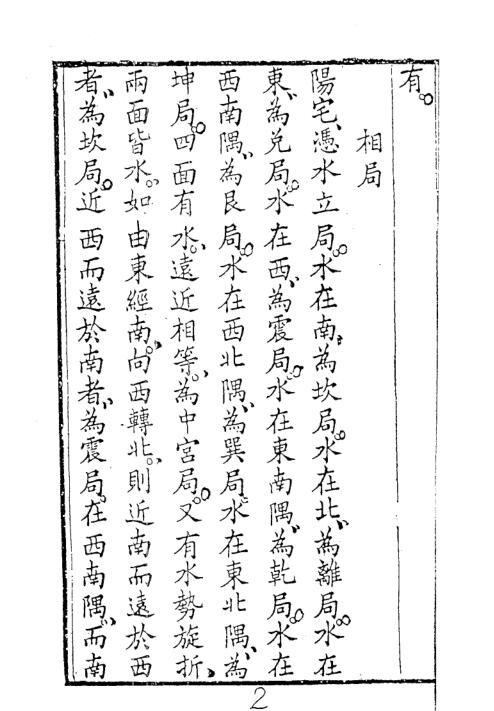 有。
相局
陽宅、憑水立局。水在南、為坎局。水在北、為離局。水在
東、為兌局。水在西、為震局。水在東南隅、為乾局。水在
西南隅、為艮局。水在西北隅、為巽局。水在東北隅、為
坤局。四面有水、遠近相等、為中宮局。又有水勢旋折、
兩面皆水。如由東經南、向西轉北、則近南而遠於西
者、為坎局。近西而遠於南者、為震局。在西南隅、而南
2